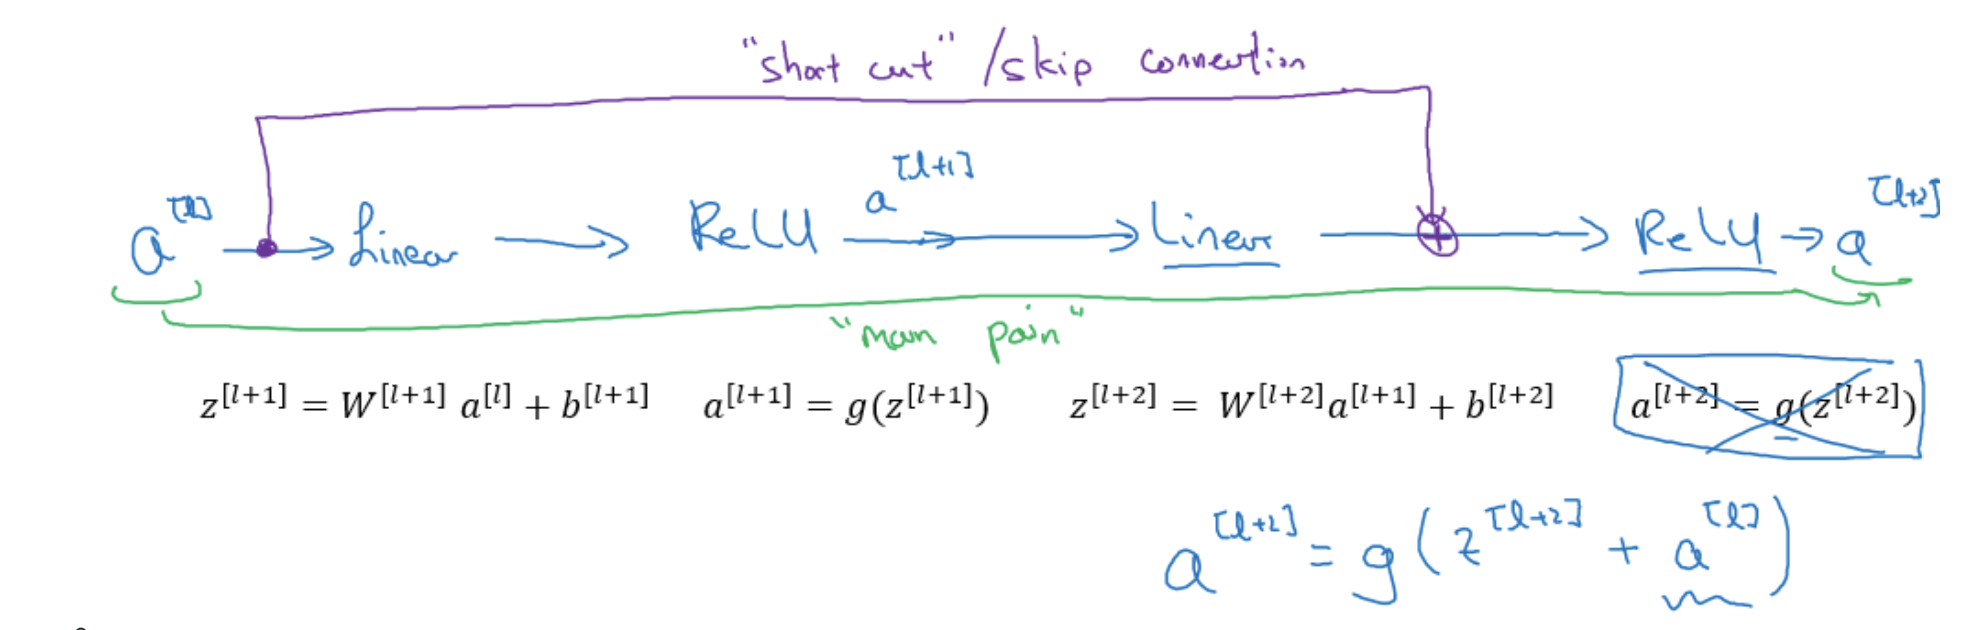 "short cut" / skip connection
a^[l] → Linear → ReLU a^[l+1] → Linear → ⊕ → ReLU → a^[l+2]
"main path"
z^[l+1] = W^[l+1] a^[l] + b^[l+1] a^[l+1] = g(z^[l+1]) z^[l+2] = W^[l+2]a^[l+1] + b^[l+2] a^[l+2] = g(z^[l+2])
a^[l+2] = g(z^[l+2] + a^[l])